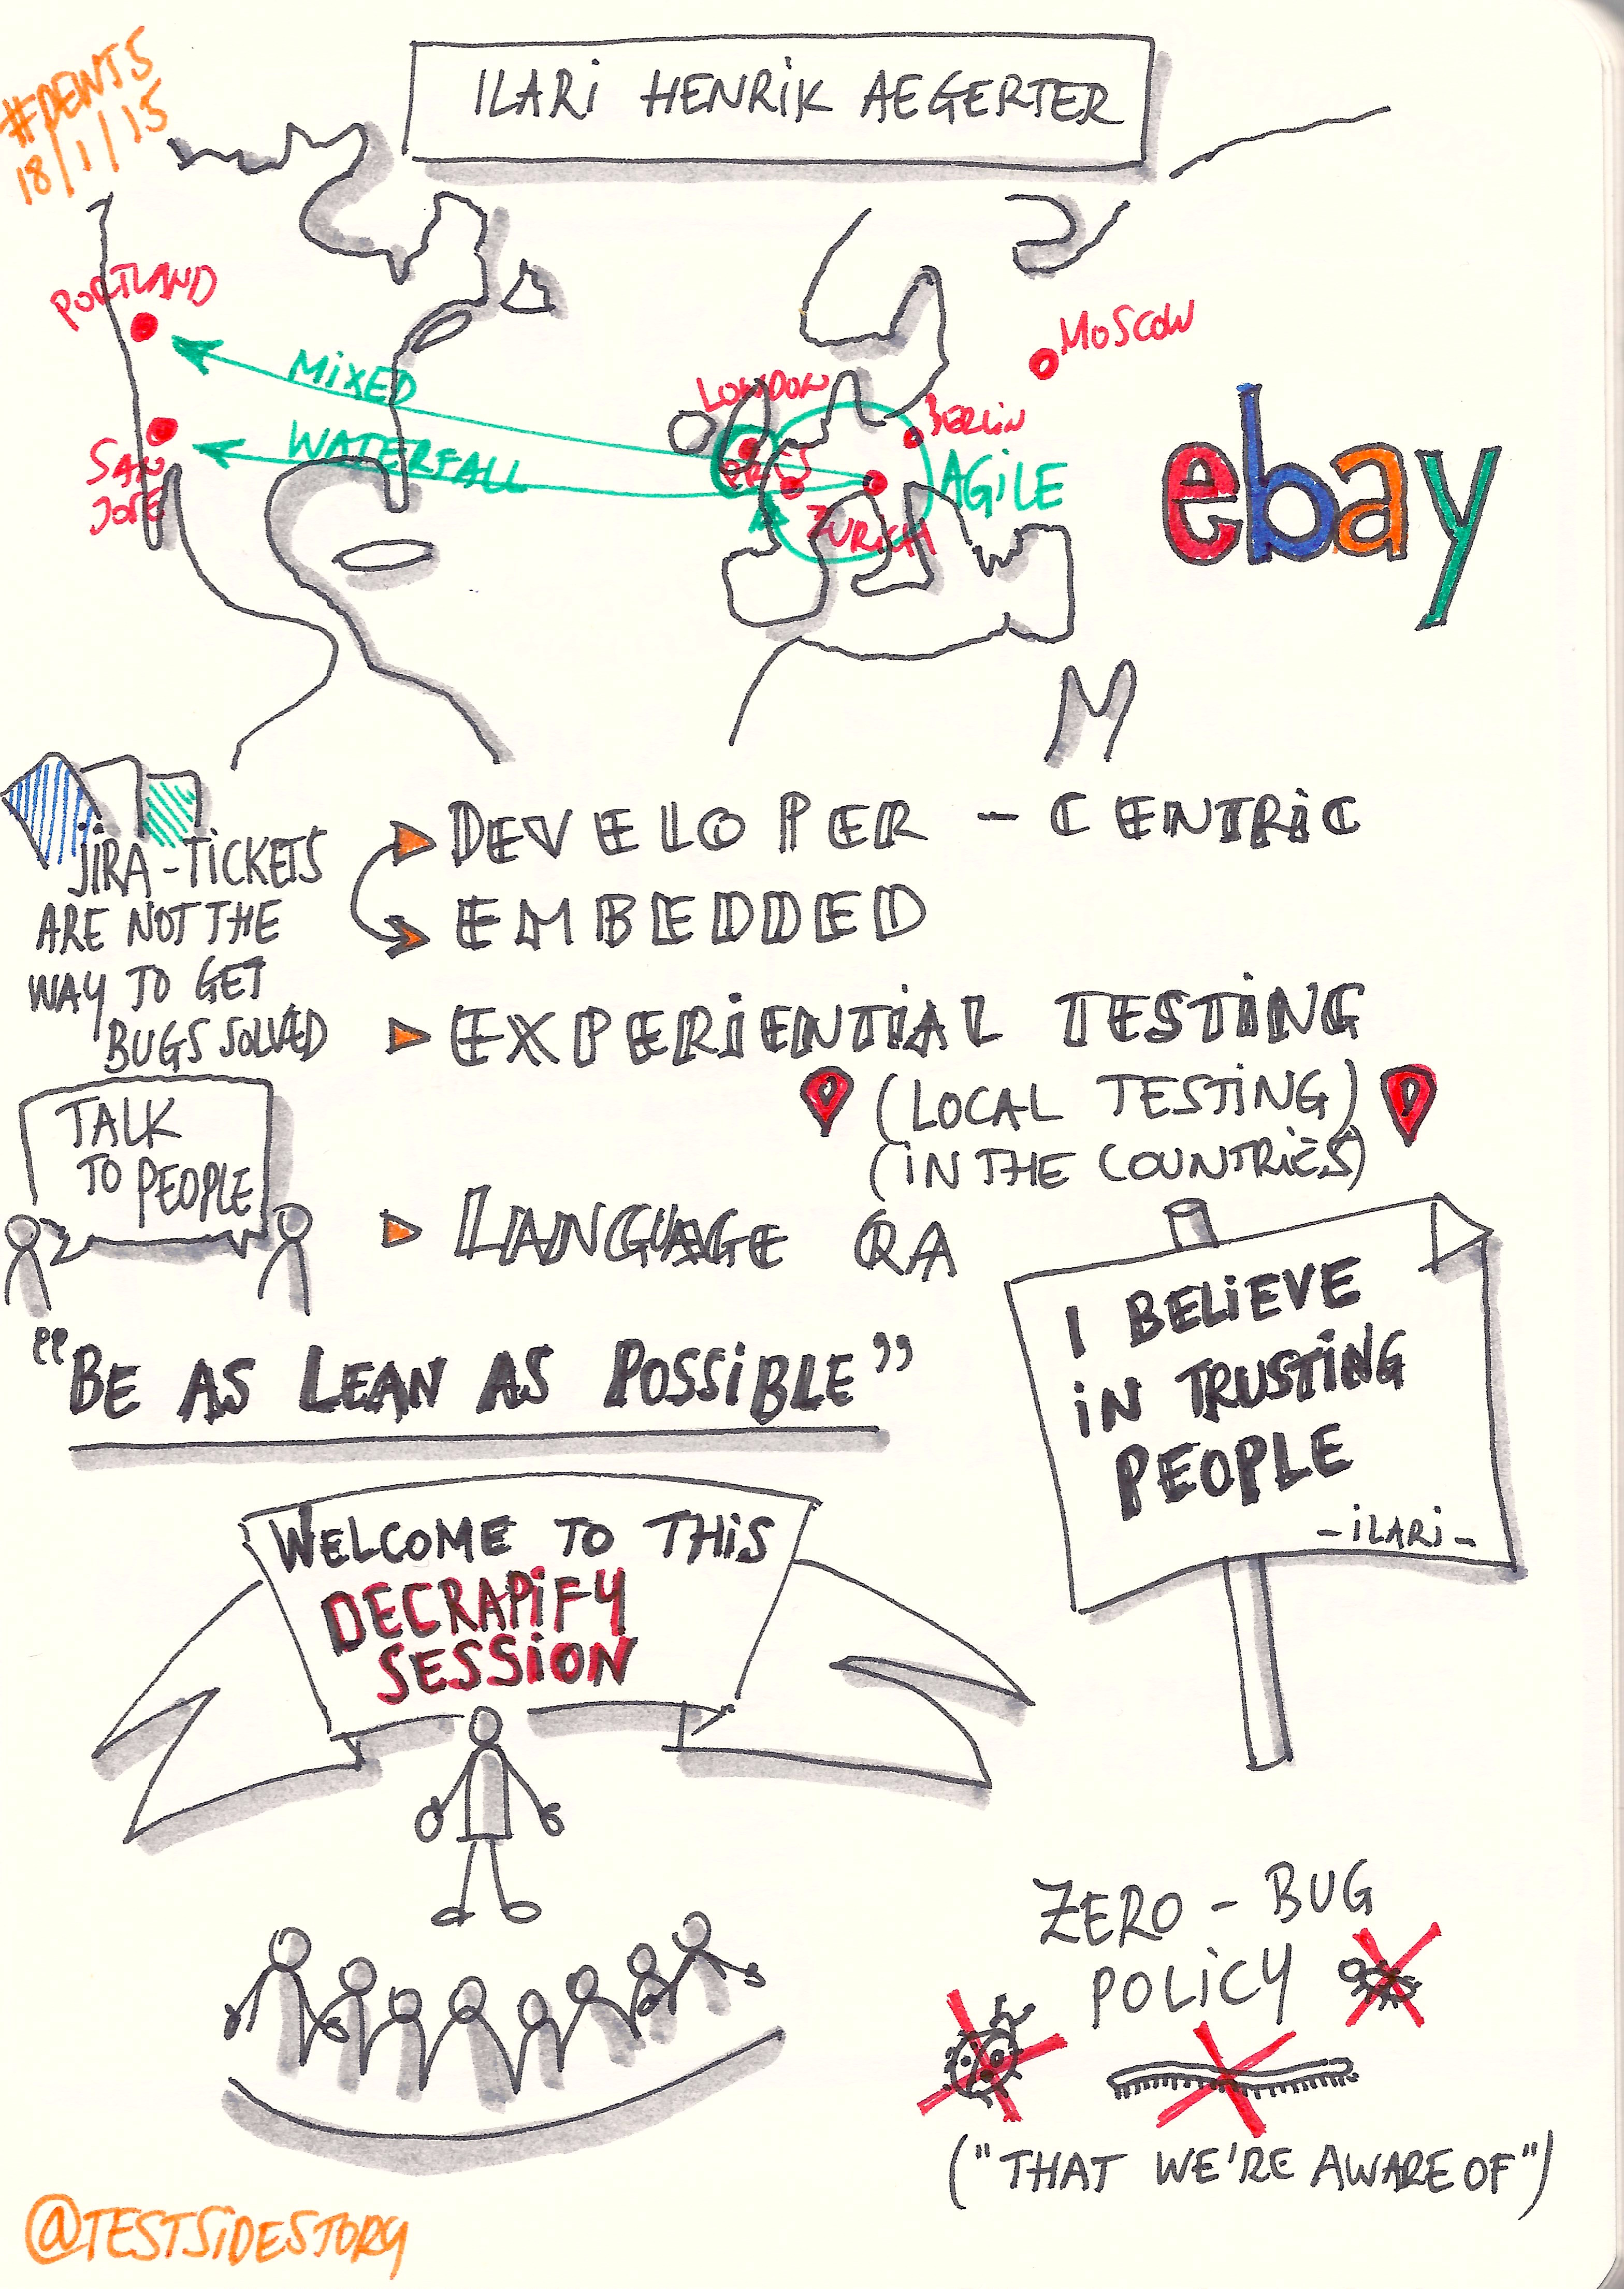 #DEWT5
18/1/15
ILARI HENRIK AEGERTER
PORTLAND
MOSCOW
MIXED
LONDON
BERLIN
SAN
JOSE
WATERFALL
PARIS
AGILE
ZURICH
ebay
JIRA-TICKETS
ARE NOT THE
WAY TO GET
BUGS SOLVED
DEVELOPER - CENTRIC
EMBEDDED
EXPERIENTIAL TESTING
(LOCAL TESTING)
(IN THE COUNTRIES)
TALK
TO PEOPLE
LANGUAGE QA
"BE AS LEAN AS POSSIBLE"
I BELIEVE
IN TRUSTING
PEOPLE
-ILARI-
WELCOME TO THIS
DECRAPIFY
SESSION
ZERO - BUG
POLICY
("THAT WE'RE AWARE OF")
@TESTSIDESTORY